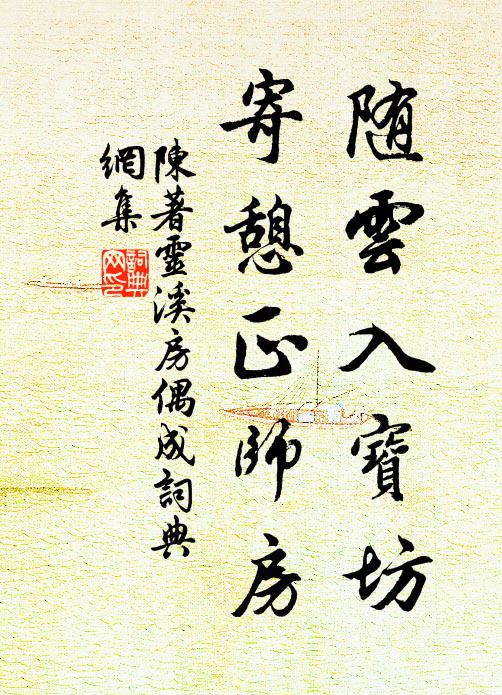 随雲入寶坊
寄憩正師房
陳著靈溪房偶成詞典
網集
詞典
网印